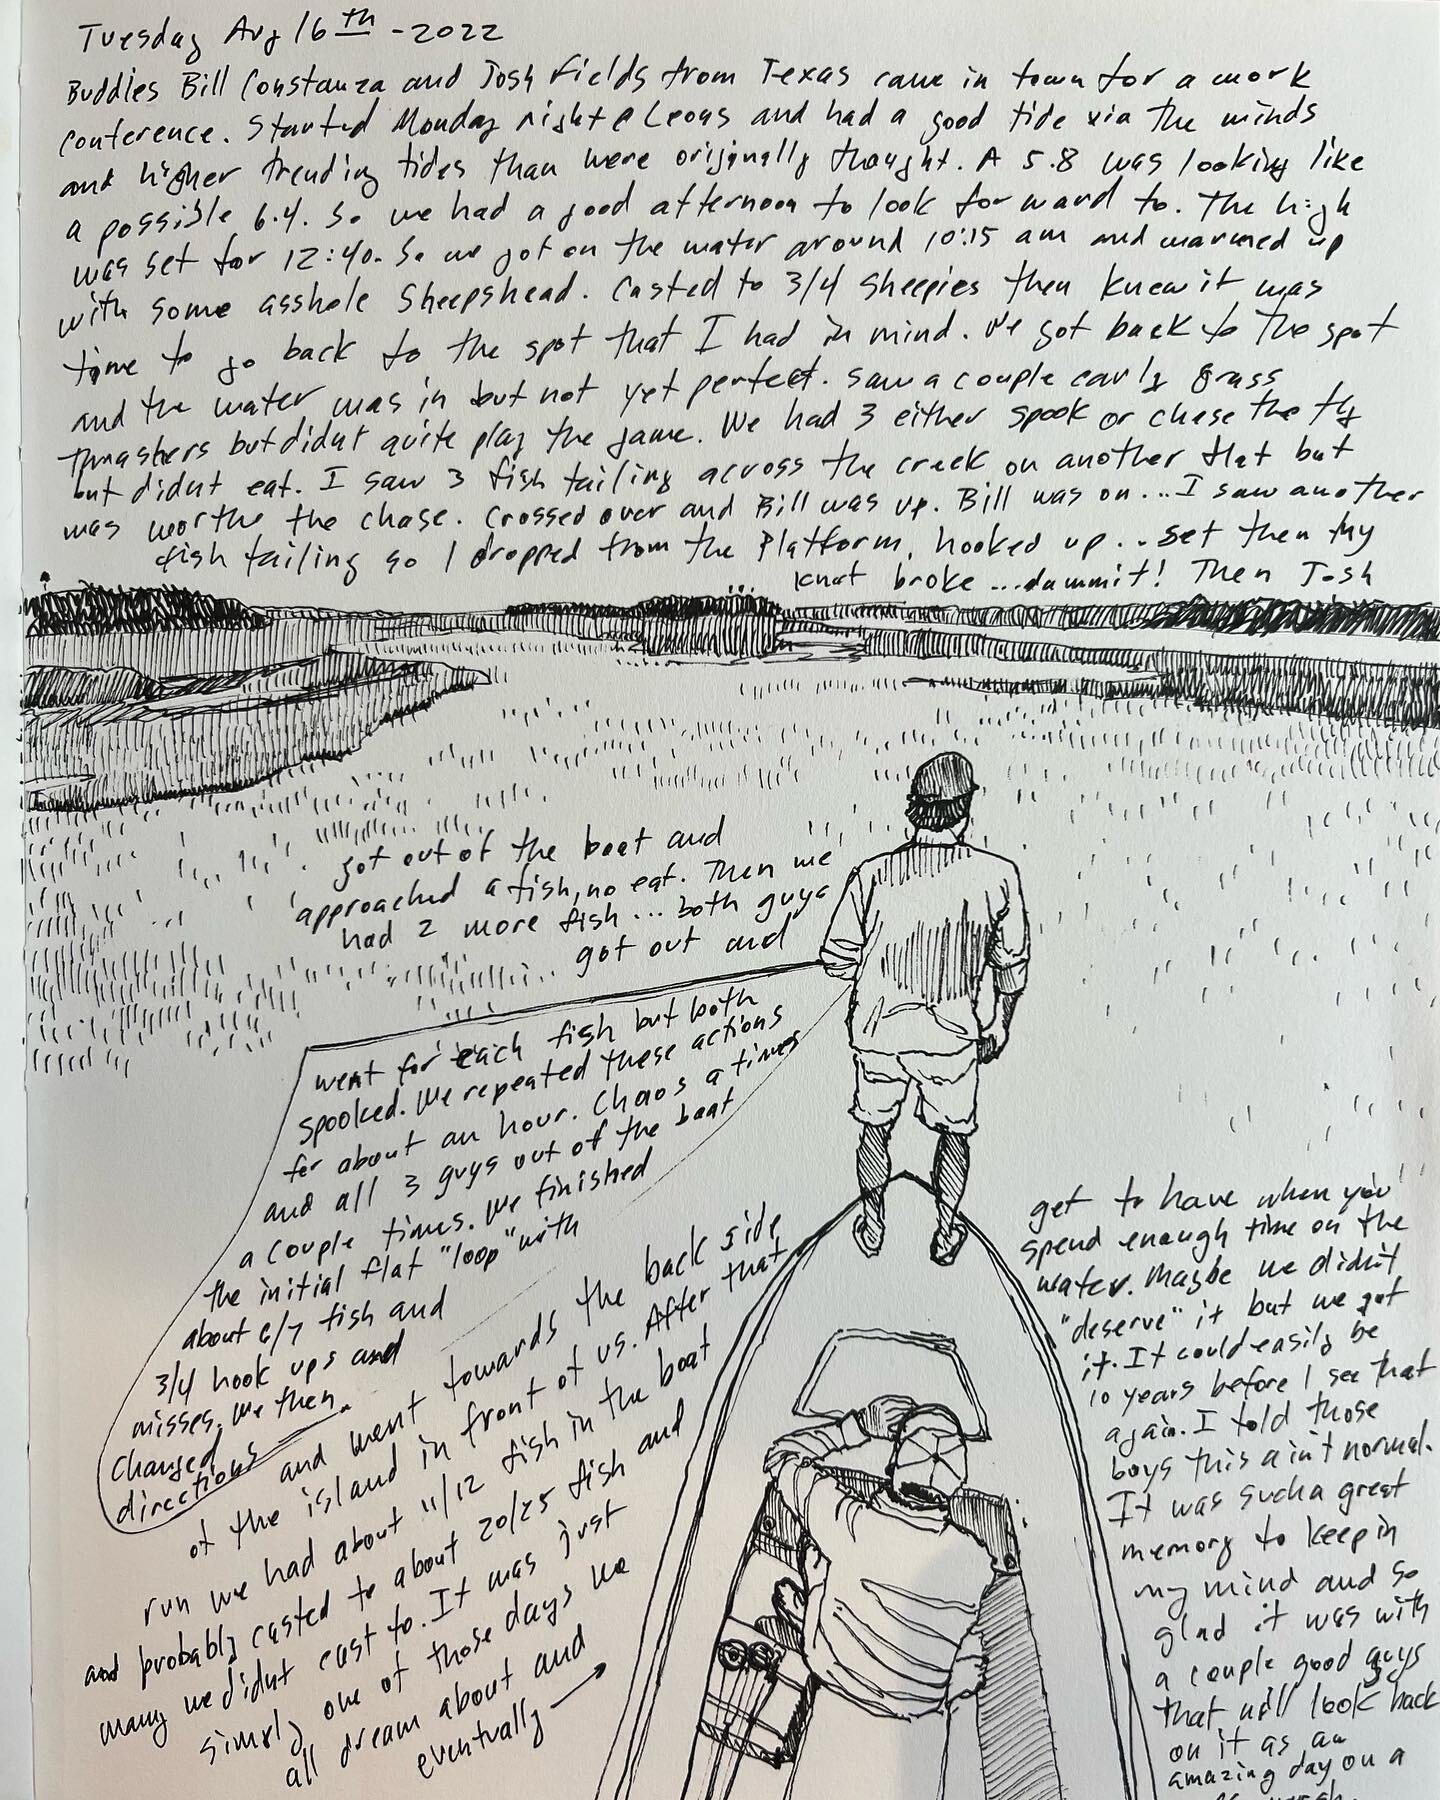 Tuesday Aug 16th - 2022
Buddies Bill Constanza and Josh Fields from Texas came in town for a work
conference. Started Monday night @ Leons and had a good tide via the minds
and higher trending tides than were originally thought. A 5.8 was looking like
a possible 6.4. So we had a good afternoon to look forward to. The high
was set for 12:40. So we got on the water around 10:15 am and warmed up
with some asshole Sheepshead. Casted to 3/4 sheepies then knew it was
time to go back to the spot that I had in mind. We got back to the spot
and the water was in but not yet perfect. Saw a couple early grass
thrashers but didnt quite play the game. We had 3 either spook or chase the fly
but didnt eat. I saw 3 fish tailing across the creek on another flat but
was worthe the chase. Crossed over and Bill was up. Bill was on...I saw another
fish tailing so I dropped from the Platform, hooked up...set then my
knot broke...dammit! Then Josh
got out of the boat and
approached a fish, no eat. Then we
had 2 more fish...both guys
got out and
went for each fish but both
spooked. We repeated these actions
for about an hour. Chaos a times
and all 3 guys out of the boat
a couple times. We finished
the initial flat "loop" with
about 6/7 fish and
3/4 hook ups and
misses. We then
changed
directions
and went towards the back side
of the island in front of us. After that
run we had about 11/12 fish in the boat
and probably casted to about 20/25 fish and
many we didnt cast to. It was just
simply one of those days we
all dream about and
eventually →
get to have when you
spend enough time on the
water. Maybe we didn't
"deserve" it but we got
it. It could easily be
10 years before I see that
again. I told those
boys this ain't normal.
It was such a great
memory to keep in
my mind and so
glad it was with
a couple good guys
that will look back
on it as an
amazing day on a